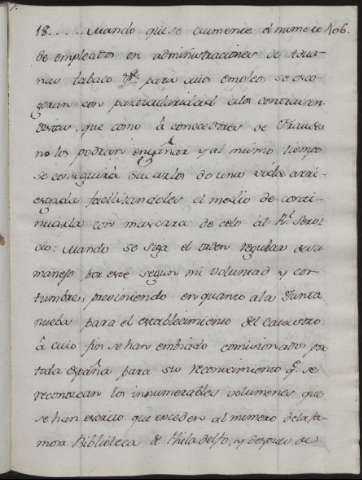 18..... Mando que se aumente el numero 106.
de empleados en administraciones de Adua-
nas tabaco &ª para cuio empleo se esco-
geran con particularidad a los contravan-
distas, que como á conocedores de fraudes
no los podran engañar y al mismo tiempo
se conseguirá sacarlos de una vida arri-
esgada facilitandoles el medio de conti-
nuarla con mascara de celo al Rl. servi-
cio: Mando se siga el orden regular de su
manejo por este segun mi voluntad y cos-
tumbre, previniendo en quanto a la Junta
nueba para el establecimiento del catastro
á cuio fin se han embiado comisionados por
toda españa para su reconocimiento qe. se
reconozcan los innumerables volumenes que
se han escrito que exceden al numero de la fa-
mosa Biblioteca de Philadelfo, y despues de